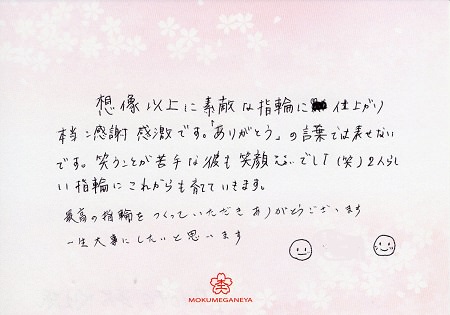 想像以上に素敵な指輪に 仕上がり
本当に感謝 感激です。「ありがとう」の言葉では表せない
です。笑うことが苦手な彼も笑顔 でした(笑) 2人らし
い指輪にこれからも育てていきます。
最高の指輪を つくっていただき ありがとうございます
一生大事にしたいと思います
MOKUMEGANEYA